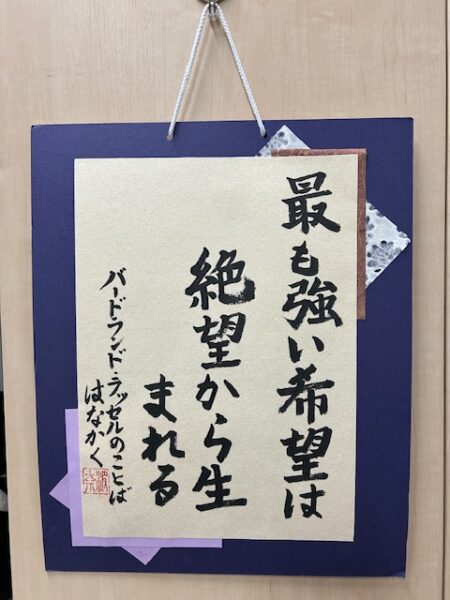 最も強い希望は
絶望から生
まれる
バードランド・ラッセルのことば
はなかく